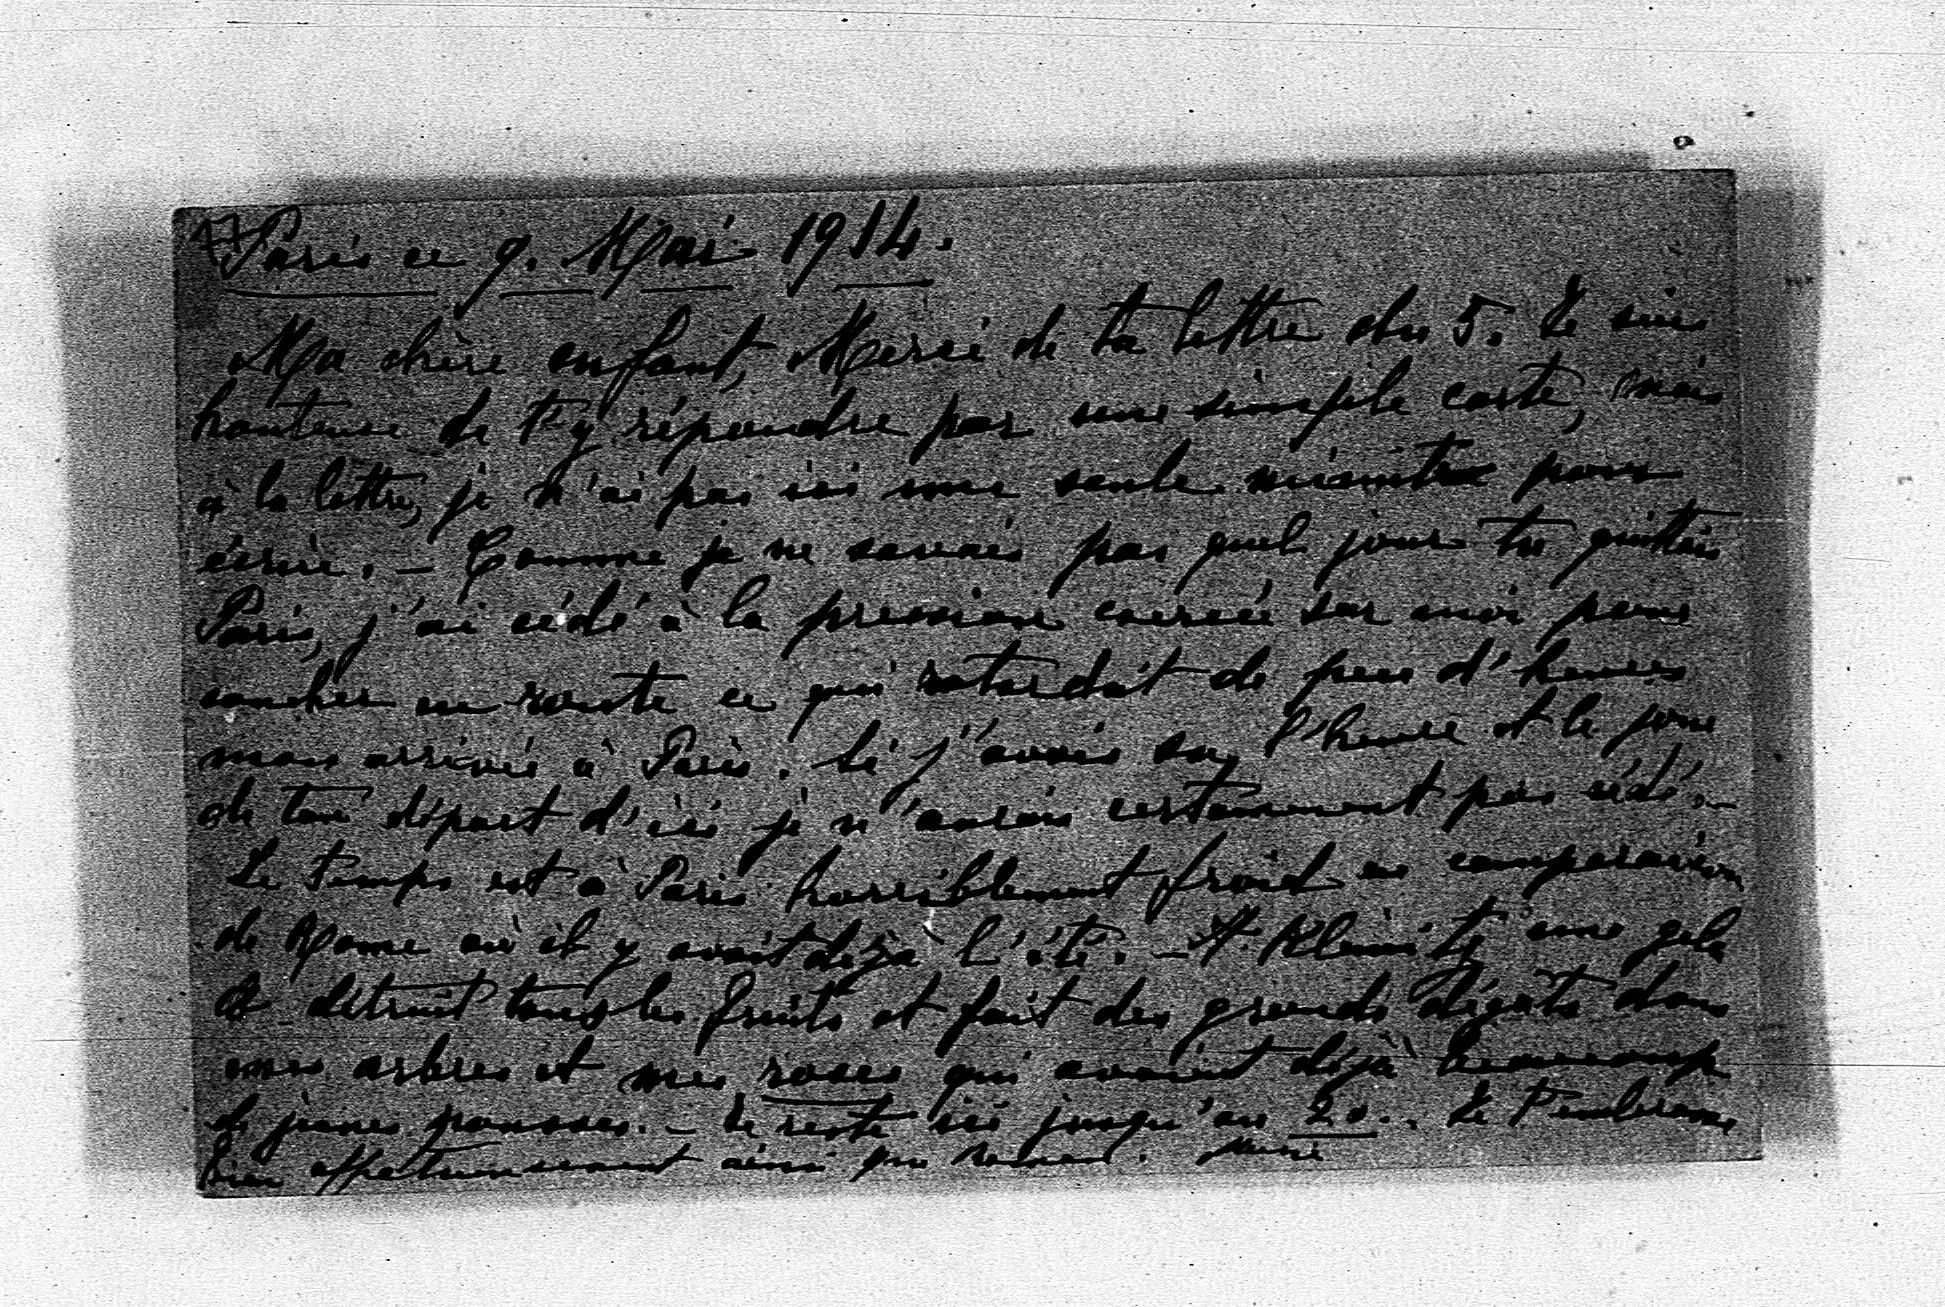 17 Paris ce 9. Mai 1914.
Ma chère enfant, Merci de ta lettre du 5. Je suis
honteuse de t'y répondre par une simple carte, mais
à la lettre, je n'ai pas ici une seule minute pour
écrire. – Comme je ne savais pas quel jour tu quittais
Paris, j'ai cédé à la pression exercée sur moi pour
coucher en route ce qui retardait de peu d'heures
mon arrivée à Paris. Si j'avais su l'heure et le jour
de ton départ d'ici je n'aurais certainement pas cédé. –
Le temps est à Paris horriblement froid en comparaison
de Rome où il y avait déjà l'été. – A une gelée
a détruit tous les fruits et fait des grands dégâts dans
mes arbres et mes roses qui avaient déjà beaucoup
de jeunes pousses. – Je reste ici jusqu'au 20. Je t'embrasse
bien affectueusement ainsi que